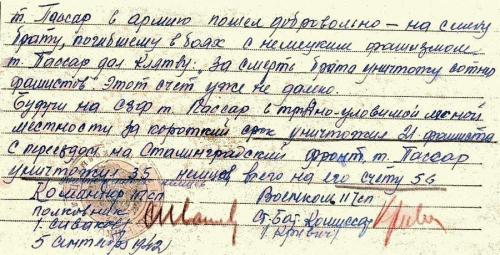 т. Пассар в армию пошел добровольно – на смену
брату, погибшему в боях с немецким фашизмом.
т. Пассар дал клятву: „За смерть брата уничтожу сотню
фашистов“. Этот счет уже не далеко.
Будучи на СЗФ т. Пассар в трудно-уловимой лесной
местности за короткий срок уничтожил 21 фашиста
С переездом на Сталинградский фронт т. Пассар
уничтожил 35 немцев всего на его счету 56
Командир 117 сп Военком 117 сп
полковник Ст. Бат. Комиссар
/Сиваков/
5 сентября 1942